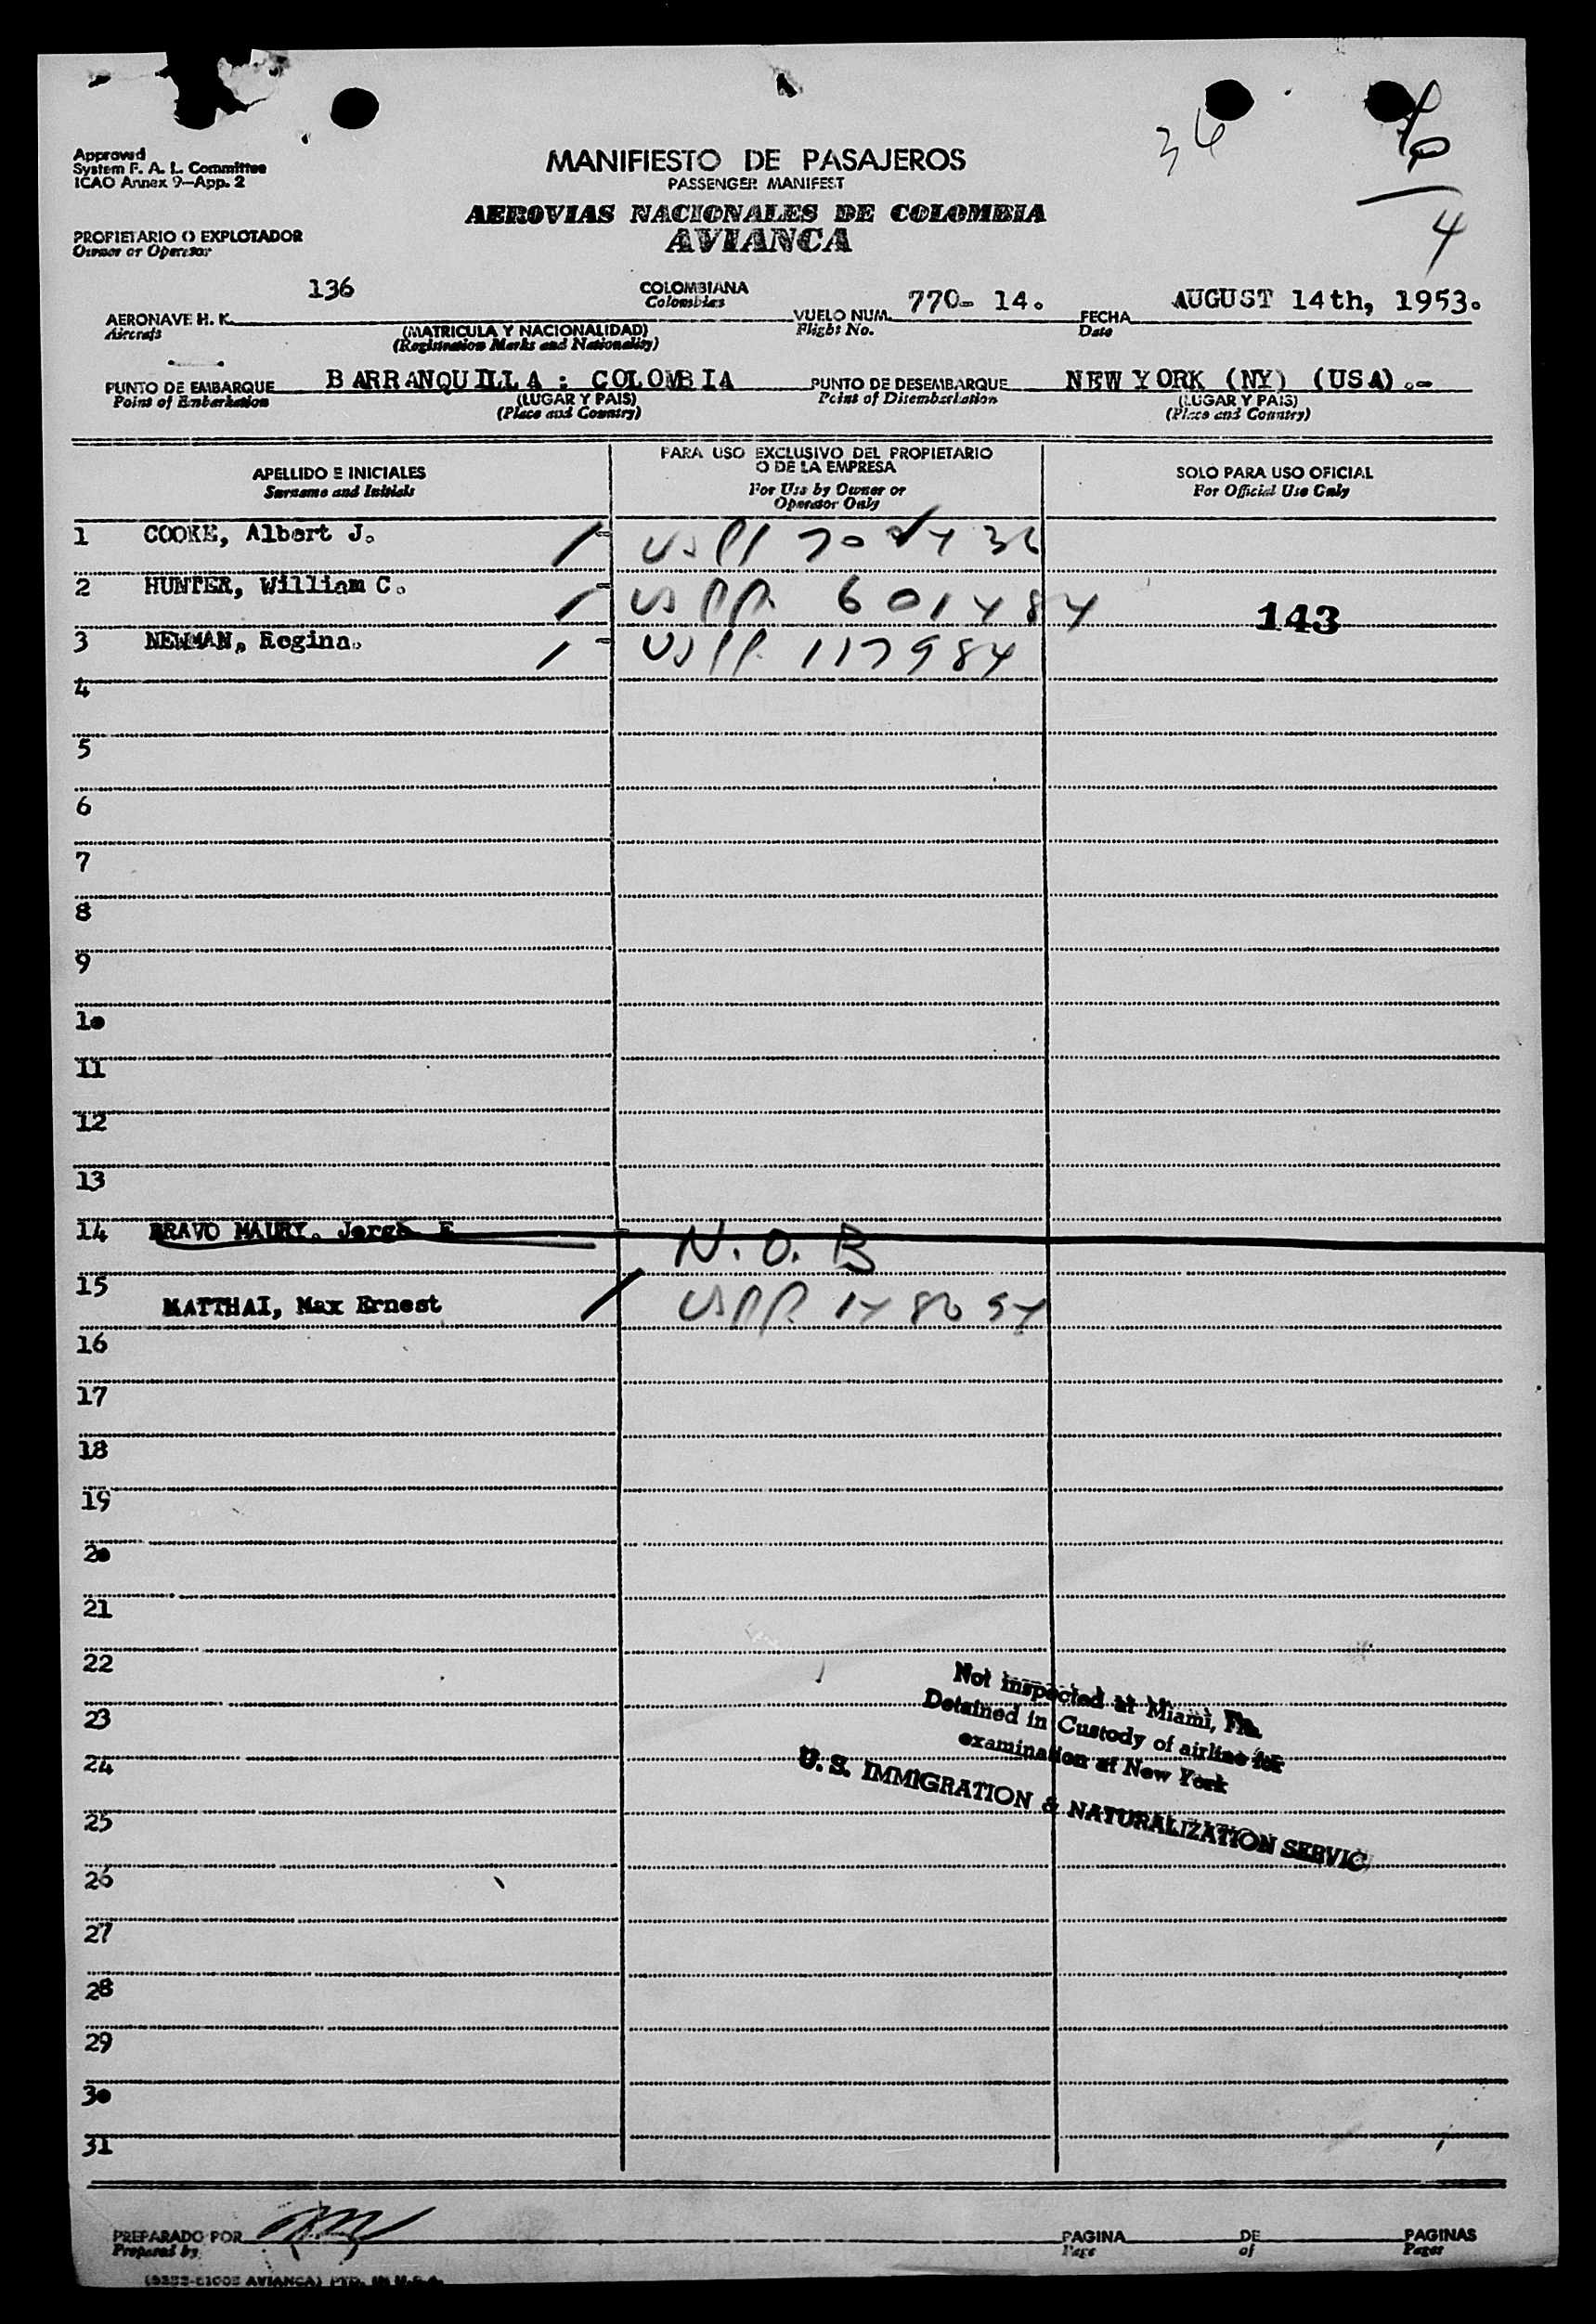 Approved
System F. A. L. Committee
ICAO Annex 9—App. 2
34
4
MANIFIESTO DE PASAJEROS
PASSENGER MANIFEST
AEROVIAS NACIONALES DE COLOMBIA
AVIANCA
PROPIETARIO O EXPLOTADOR
Owner or Operator
AERONAVE H. K. 136 COLOMBIANA VUELO NUM. 770- 14. FECHA AUGUST 14th, 1953.
Aircraft Colombian Flight No. Date
(MATRICULA Y NACIONALIDAD)
(Registration Marks and Nationality)
PUNTO DE EMBARQUE BARRANQUILLA : COLOMBIA PUNTO DE DESEMBARQUE NEW YORK (NY) (USA).-
Point of Embarkation (LUGAR Y PAIS) Point of Disembarkation (LUGAR Y PAIS)
(Place and Country) (Place and Country)
APELLIDO E INICIALES
Surname and Initials
PARA USO EXCLUSIVO DEL PROPIETARIO
O DE LA EMPRESA
For Use by Owner or
Operator Only
SOLO PARA USO OFICIAL
For Official Use Only
1 COOKE, Albert J. USPP
2 HUNTER, William C. USPP. 601484
143
3 NEWMAN, Regina. USPP. 117984
4
5
6
7
8
9
10
11
12
13
14 BRAVO MAURY. Jorge E N.O.B
15
MATTHAI, Max Ernest USPP.
16
17
18
19
20
21
22
23
24
25
26
27
28
29
30
31
Not inspected at Miami, Fla.
Detained in Custody of airline for
examination at New York
U. S. IMMIGRATION & NATURALIZATION SERVIC
PREPARADO POR PAGINA DE PAGINAS
Prepared by Page of Pages
AVIANCA) PTD. IN U.S.A.